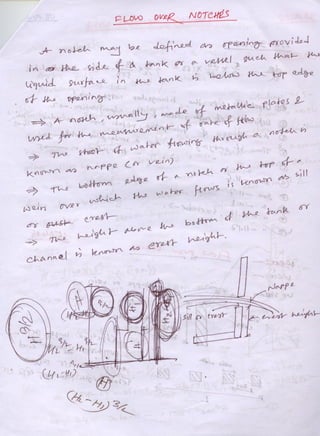 FLOW OVER NOTCHES
A notch may be defined as opening provided
in or the side of a tank or a vessel, such that the
liquid surface in the tank is below the top edge
of the opening.
⇒ A notch, usually, made of metallic plates &
used for the measurement of rate of flow.
⇒ The sheet of water flowing through a notch is
known as nappe (or vein)
⇒ The bottom edge of a notch or the top of a
wein over which the water flows is known as sill
or crest
⇒ The height above the bottom of the tank or
channel is known as crest height.
Nappe
sill or crest
crest height
(H)
(H₂-H₁)3/2